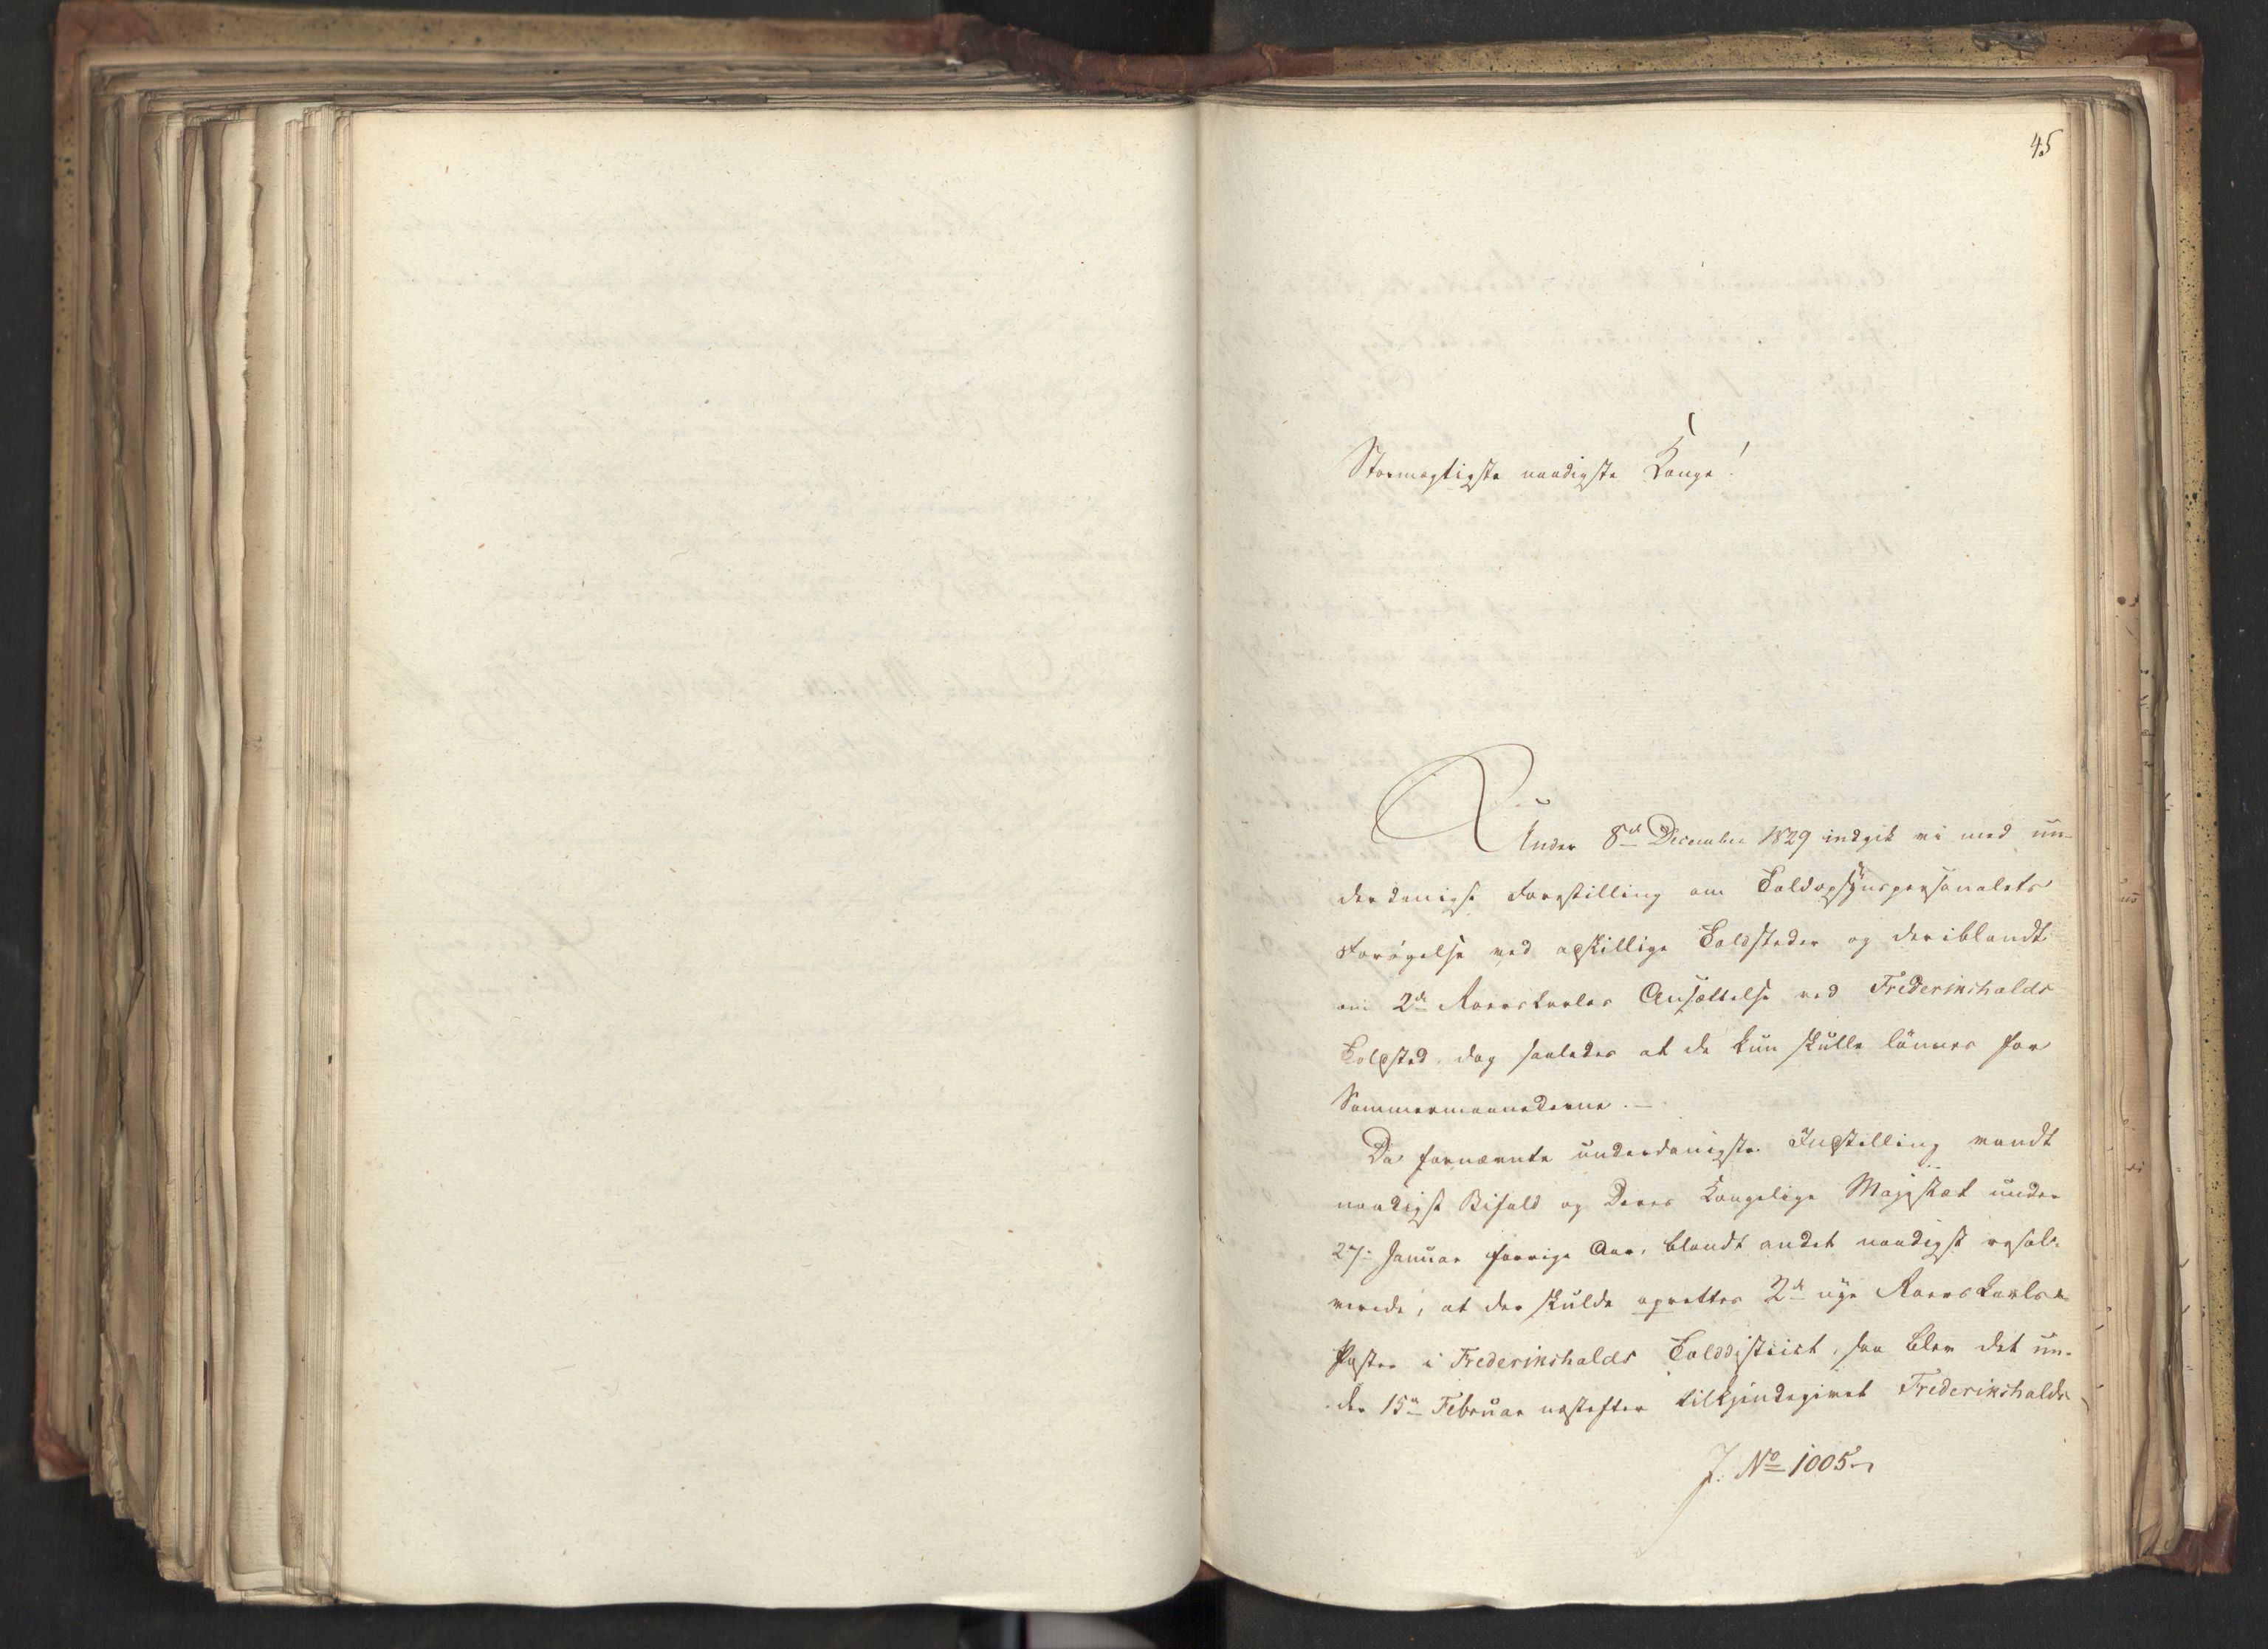 45
Stormægtigste naadigste Konge!
Under 8de December 1829 indgik vi med un-
derdanigst Forestilling om Toldopsynspersonalets
Forøgelse ved adskillige Toldsteder og deriblandt
om 2de Roerskarles Ansættelse ved Frederikshalds
Toldsted, dog saaledes at de kun skulle lønnes for
Sommermaanederne. —
Da fornævnte underdanigste Indstilling vandt
naadigst Bifald og Deres Kongelige Majestæt under
27. Januar forrige Aar, blandt andet naadigst resol-
verede, at der skulde oprettes 2de nye Roerskarls-
Poster i Frederikshalds Tolddistrict, saa blev det un-
der 15de Februar næstefter tilkjendegivet Frederikshalds
J. No 1005